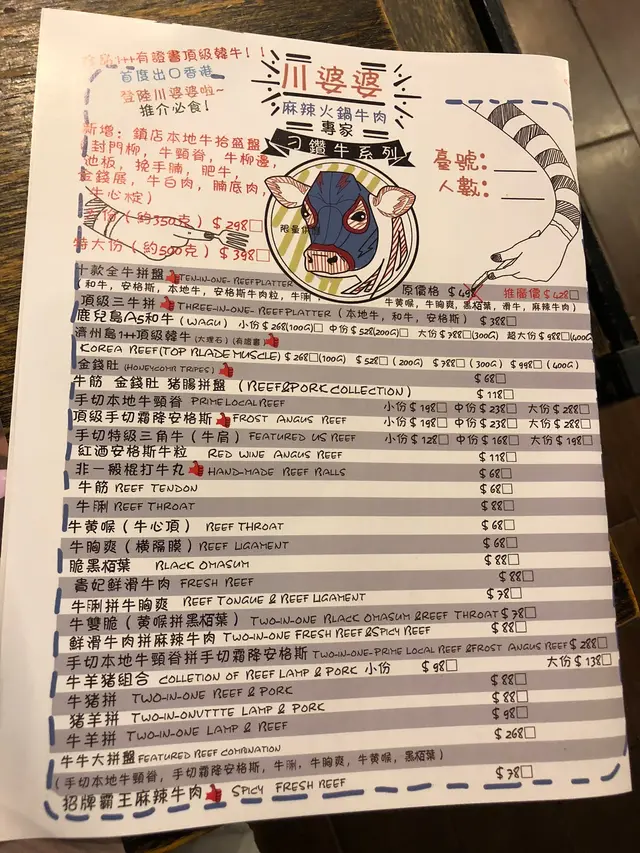 有證書頂級韓牛！！
首度出口香港
登陸川婆婆啦~
推介必食！
川婆婆
麻辣火鍋牛肉
專家
刁鑽牛系列
臺號：
人數：
新增：鎖店本地牛拾盛盤
(封門柳，牛頸脊，牛柳邊，
池板，挽手腩，肥牛，
金錢展，牛白肉，腩底肉，
牛心椗)
(約350克) $298□
特大份 (約500克) $398□
十款全牛拼盤 TEN-IN-ONE-BEEFPLATTER 原價格 推廣價 $428□
(和牛，安格斯，本地牛，安格斯牛肉粒，牛脷，牛黃喉，牛胸爽，黑栢葉，滑牛，麻辣牛肉)
頂級三牛拼 THREE-IN-ONE-BEEFPLATTER (本地牛，和牛，安格斯) $388□
鹿兒島A5和牛 (WAGU) 小份 $268(100G) 中份 $528(200G) 大份 $788□(300G) 超大份 $988□(400G
濟州島1++頂級韓牛 (大理石) (有證書)
KOREA BEEF(TOP BLADE MUSCLE) $268□(100G) $528□(200G) $788□(300G) $998□(400G)
金錢肚 (HONEYCOMB TRIPES) $68□
牛筋 金錢肚 豬腸拼盤 (BEEF&PORK COLLECTION) $118□
手切本地牛頸脊 PRIME LOCAL BEEF 小份 $198□ 中份 $238□ 大份 $288□
頂級手切霜降安格斯 FROST ANGUS BEEF 小份 $198□ 中份 $238□ 大份 $288□
手切特級三角牛 (牛肩) FEATURED US BEEF 小份 $128□ 中份 $168□ 大份 $198□
紅酒安格斯牛粒 RED WINE ANGUS BEEF $118□
非一般棍打牛丸 HAND-MADE BEEF BALLS $68□
牛筋 BEEF TENDON $68□
牛脷 BEEF THROAT $88□
牛黃喉 (牛心頂) BEEF THROAT $68□
牛胸爽 (橫隔膜) BEEF LIGAMENT $68□
脆黑栢葉 BLACK OMASUM $88□
貴妃鮮滑牛肉 FRESH BEEF $88□
牛脷拼牛胸爽 BEEF TONGUE & BEEF LIGAMENT $78□
牛雙脆 (黃喉拼黑栢葉) TWO-IN-ONE BLACK OMASUM &REEF THROAT $78□
鮮滑牛肉拼麻辣牛肉 TWO-IN-ONE FRESH BEEF&SPICY BEEF $88□
手切本地牛頸脊拼手切霜降安格斯 TWO-IN-ONE-PRIME LOCAL BEEF &FROST ANGUS BEEF $288□
牛羊豬組合 COLLETION OF BEEF LAMP & PORK 小份 $98□ 大份 $138□
牛豬拼 TWO-IN-ONE BEEF & PORK $88□
豬羊拼 TWO-IN-ONVTTTE LAMP & PORK $88□
牛羊拼 TWO-IN-ONE LAMP & BEEF $98□
牛牛大拼盤 FEATURED BEEF COMBNATION $268□
(手切本地牛頸脊，手切霜降安格斯，牛脷，牛胸爽，牛黃喉，黑栢葉)
招牌霸王麻辣牛肉 SPICY FRESH BEEF $78□